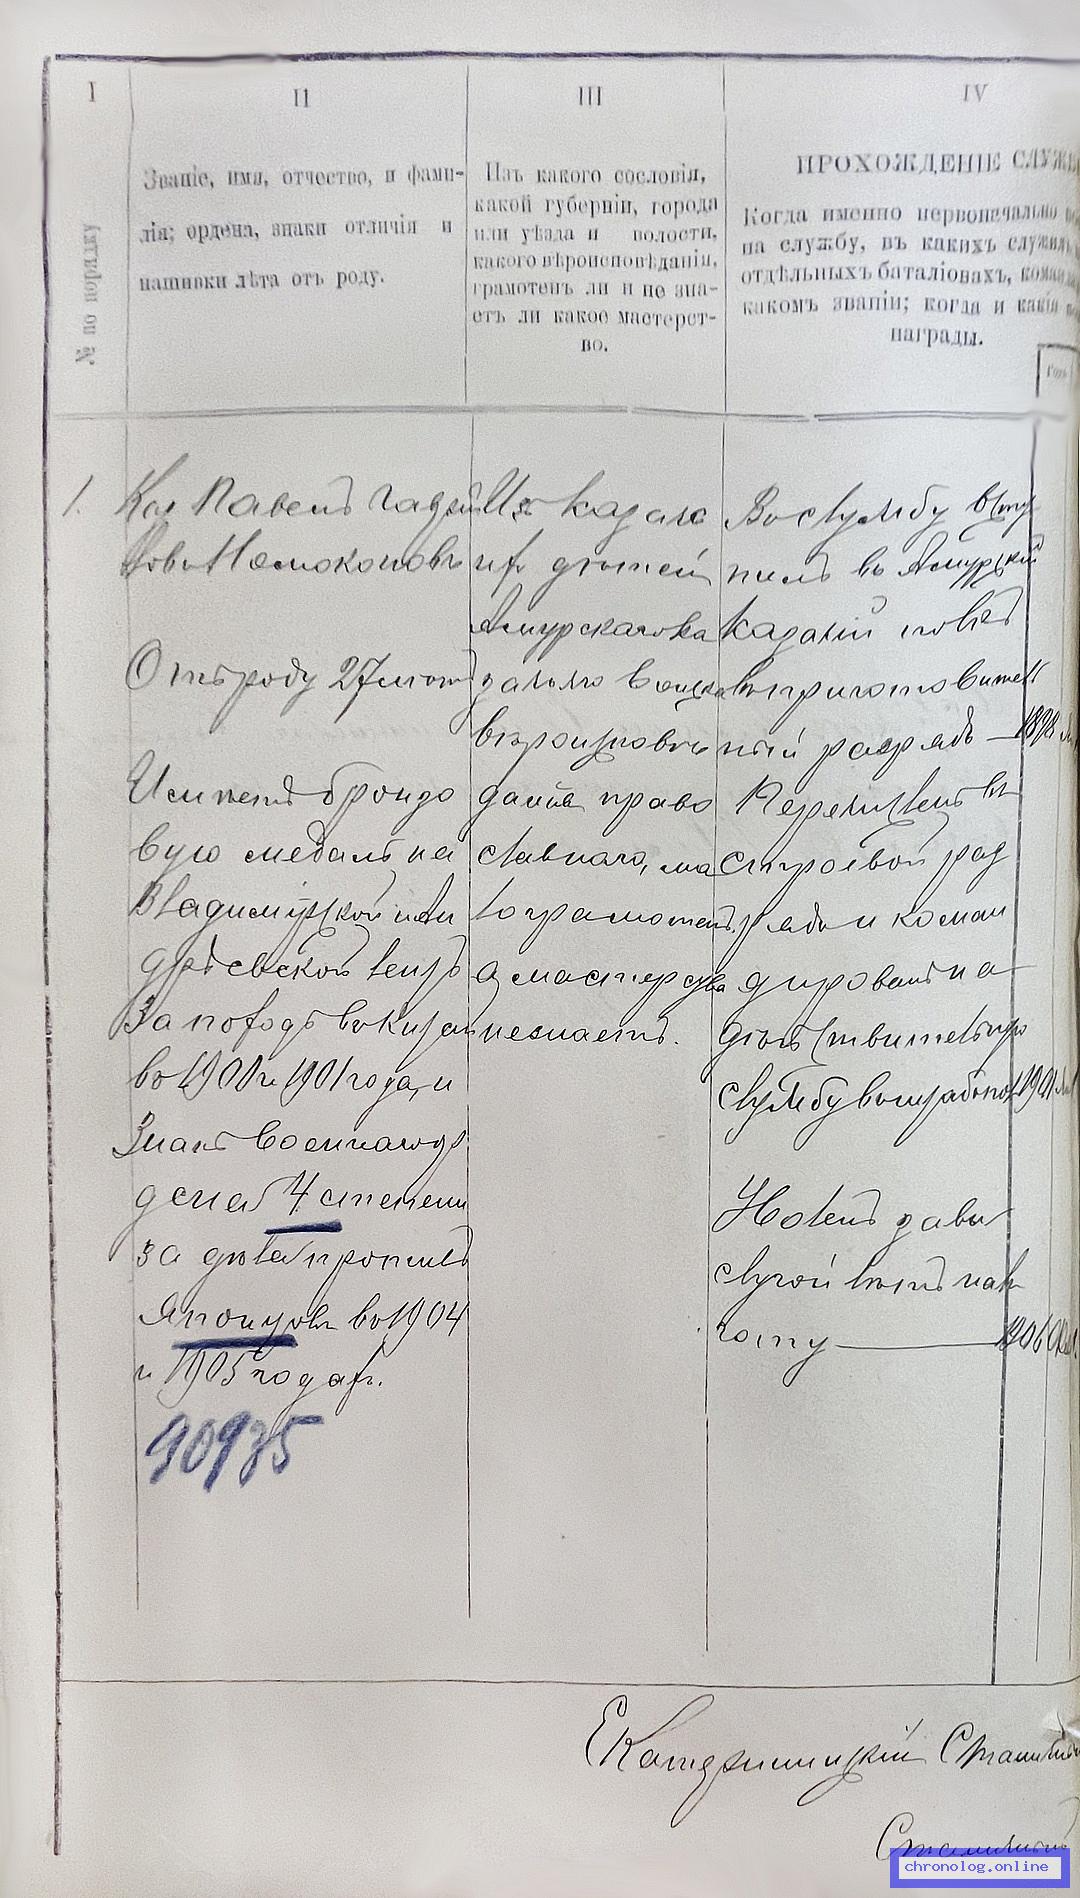 I
II
III
IV
№ по порядку
Званіе, имя, отчество, и фами-
лія; ордена, знаки отличія и
нашивки лѣта отъ роду.
Изъ какого сословія,
какой губерніи, города
или уѣзда и волости,
какого вѣроисповѣданія,
грамотенъ ли и не зна-
етъ ли какое мастерст-
во.
ПРОХОЖДЕНІЕ СЛУЖБ
Когда именно первоначально
на службу, въ какихъ
отдѣльныхъ баталіонахъ,
какомъ званіи; когда и какія
награды.
1.
Каз Павелъ
Номоконовъ
Отъ роду 27 лѣтъ
Имѣетъ бронзо
вую медаль на
Владимірской и Ан
дрѣевской лентѣ
За походъ въ Китай
въ 1900 и 1901 года, и
Знакъ военнаго ор
дена 4 степени
за дѣла противъ
Японцовъ въ 1904
и 1905 годахъ.
90935
Из казачь
ихъ дѣтей
Амурскаго Ка
зачьяго войска
вѣроисповѣ
данія право
славнаго, ма
лограмотенъ,
а мастерства
незнаетъ.
Во службу всту
пилъ въ Амурскій
казачій полкъ
въ приготовитель
ный разрядъ — 1898
Перечисленъ въ
строевой раз
рядъ и коман
дированъ на
дѣйствительную
службу 1901
Уволенъ за вы
слугой лѣтъ на ль
готу — 1906
Екатериницкій
chronolog.online